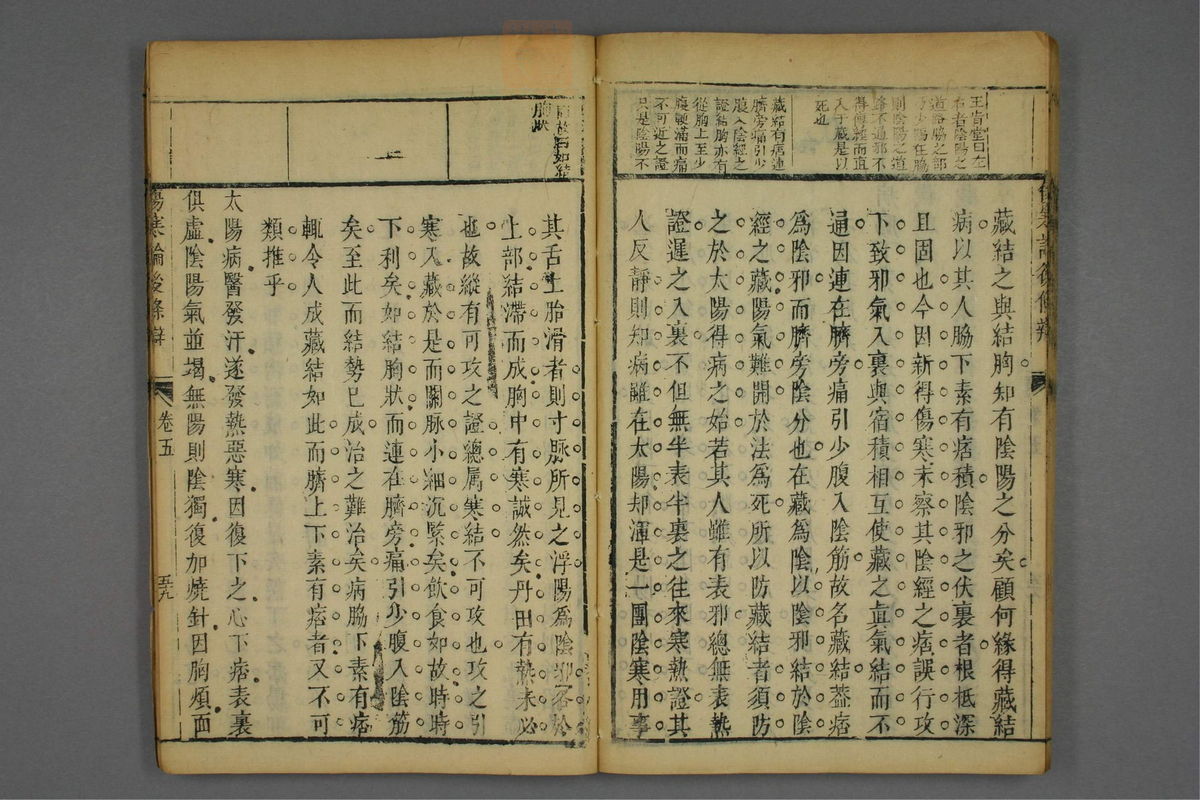 王肯堂曰左
右者陰陽之
道路脇之部
少陽在脇
則陰陽之道
路不通邪不
得傳經而直
入于藏是以
死也
藏結有痞連
臍旁痛引少
腹入陰經之
證結胸亦有
從胸上至少
腹鞕滿而痛
不可近之證
只是陰陽不
傷寒論後條辯
藏結之與結胸知有陰陽之分矣顧何緣得藏結
病以其人脇下素有痞積陰邪之伏裏者根柢深
且固也今因新得傷寒未察其陰經之痞誤行攻
下致邪氣入裏與宿積相互使藏之眞氣結而不
通因連在臍旁痛引少腹入陰筋故名藏結蓋痞
爲陰邪而臍旁陰分也在藏爲陰以陰邪結於陰
經之藏陽氣難開於法爲死所以防藏結者須防
之於太陽得病之始若其人雖有表邪總無表熱
證遲之入裏不但無半表半裏之往來寒熱證其
人反靜則知病雖在太陽却渾是一團陰寒用事
故曰如結
胸狀
其舌上胎滑者則寸脈所見之浮陽爲陰邪客於
上部結滯而成胸中有寒誠然矣丹田有熱未必
也故縱有可攻之證總属寒結不可攻也攻之引
寒入藏於是而關脉小細沉緊矣飲食如故時時
下利矣如結胸狀而連在臍旁痛引少腹入陰筋
矣至此而結勢已成治之難治矣病脇下素有痞
輒令人成藏結如此而臍上下素有痞者又不可
類推乎
太陽病醫發汗遂發熱惡寒因復下之心下痞表裏
俱虛陰陽氣並竭無陽則陰獨復加燒針因胸煩面
傷寒論後條辯
卷五
五九